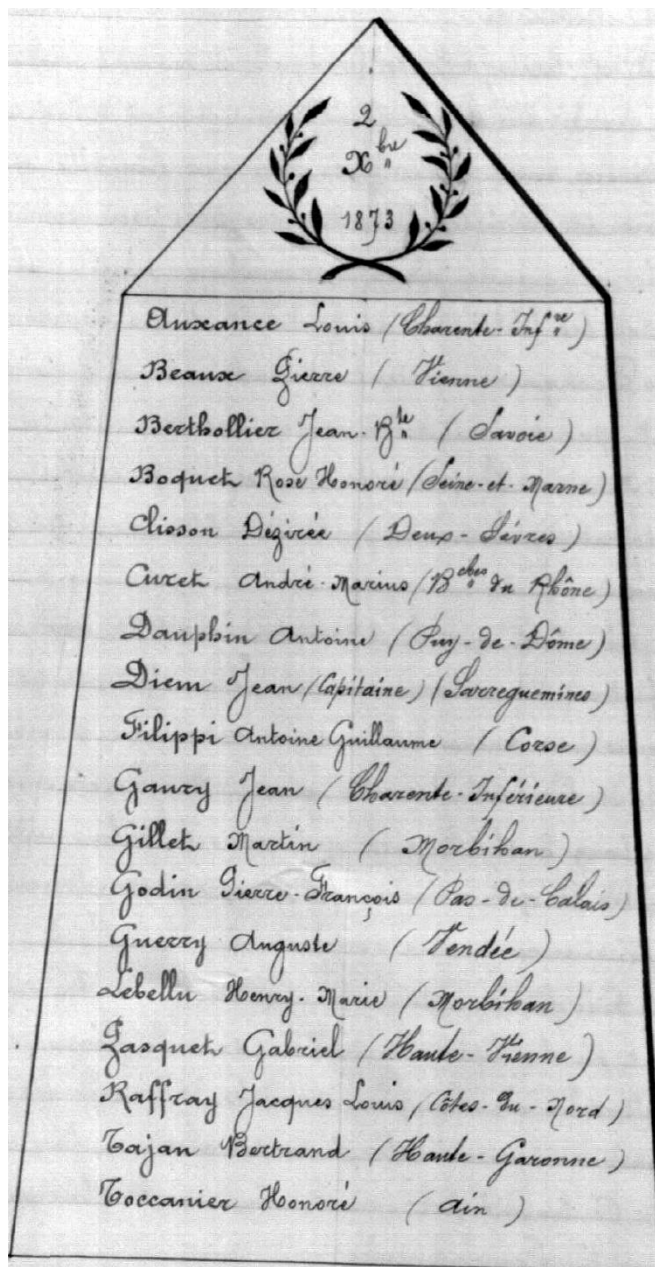 2
Xbre
1873
Auxance Louis (Charente-Infre)
Beaux Pierre (Vienne)
Berthollier Jean-Bte (Savoie)
Boquet Rose Honoré (Seine-et-Marne)
Clisson Dézirée (Deux-Sévres)
Curet André-Marius (Bches du Rhône)
Dauphin Antoine (Puy-de-Dôme)
Diem Jean (Capitaine) (Sarreguemines)
Filippi Antoine Guillaume (Corse)
Gaury Jean (Charente-Inférieure)
Gillet Martin (Morbihan)
Godin Pierre-François (Pas-de-Calais)
Guerry Auguste (Vendée)
Lebellu Henry-Marie (Morbihan)
Pasquet Gabriel (Haute-Vienne)
Raffray Jacques Louis (Côtes-du-Nord)
Tajan Bertrand (Haute-Garonne)
Toccanier Honoré (Ain)